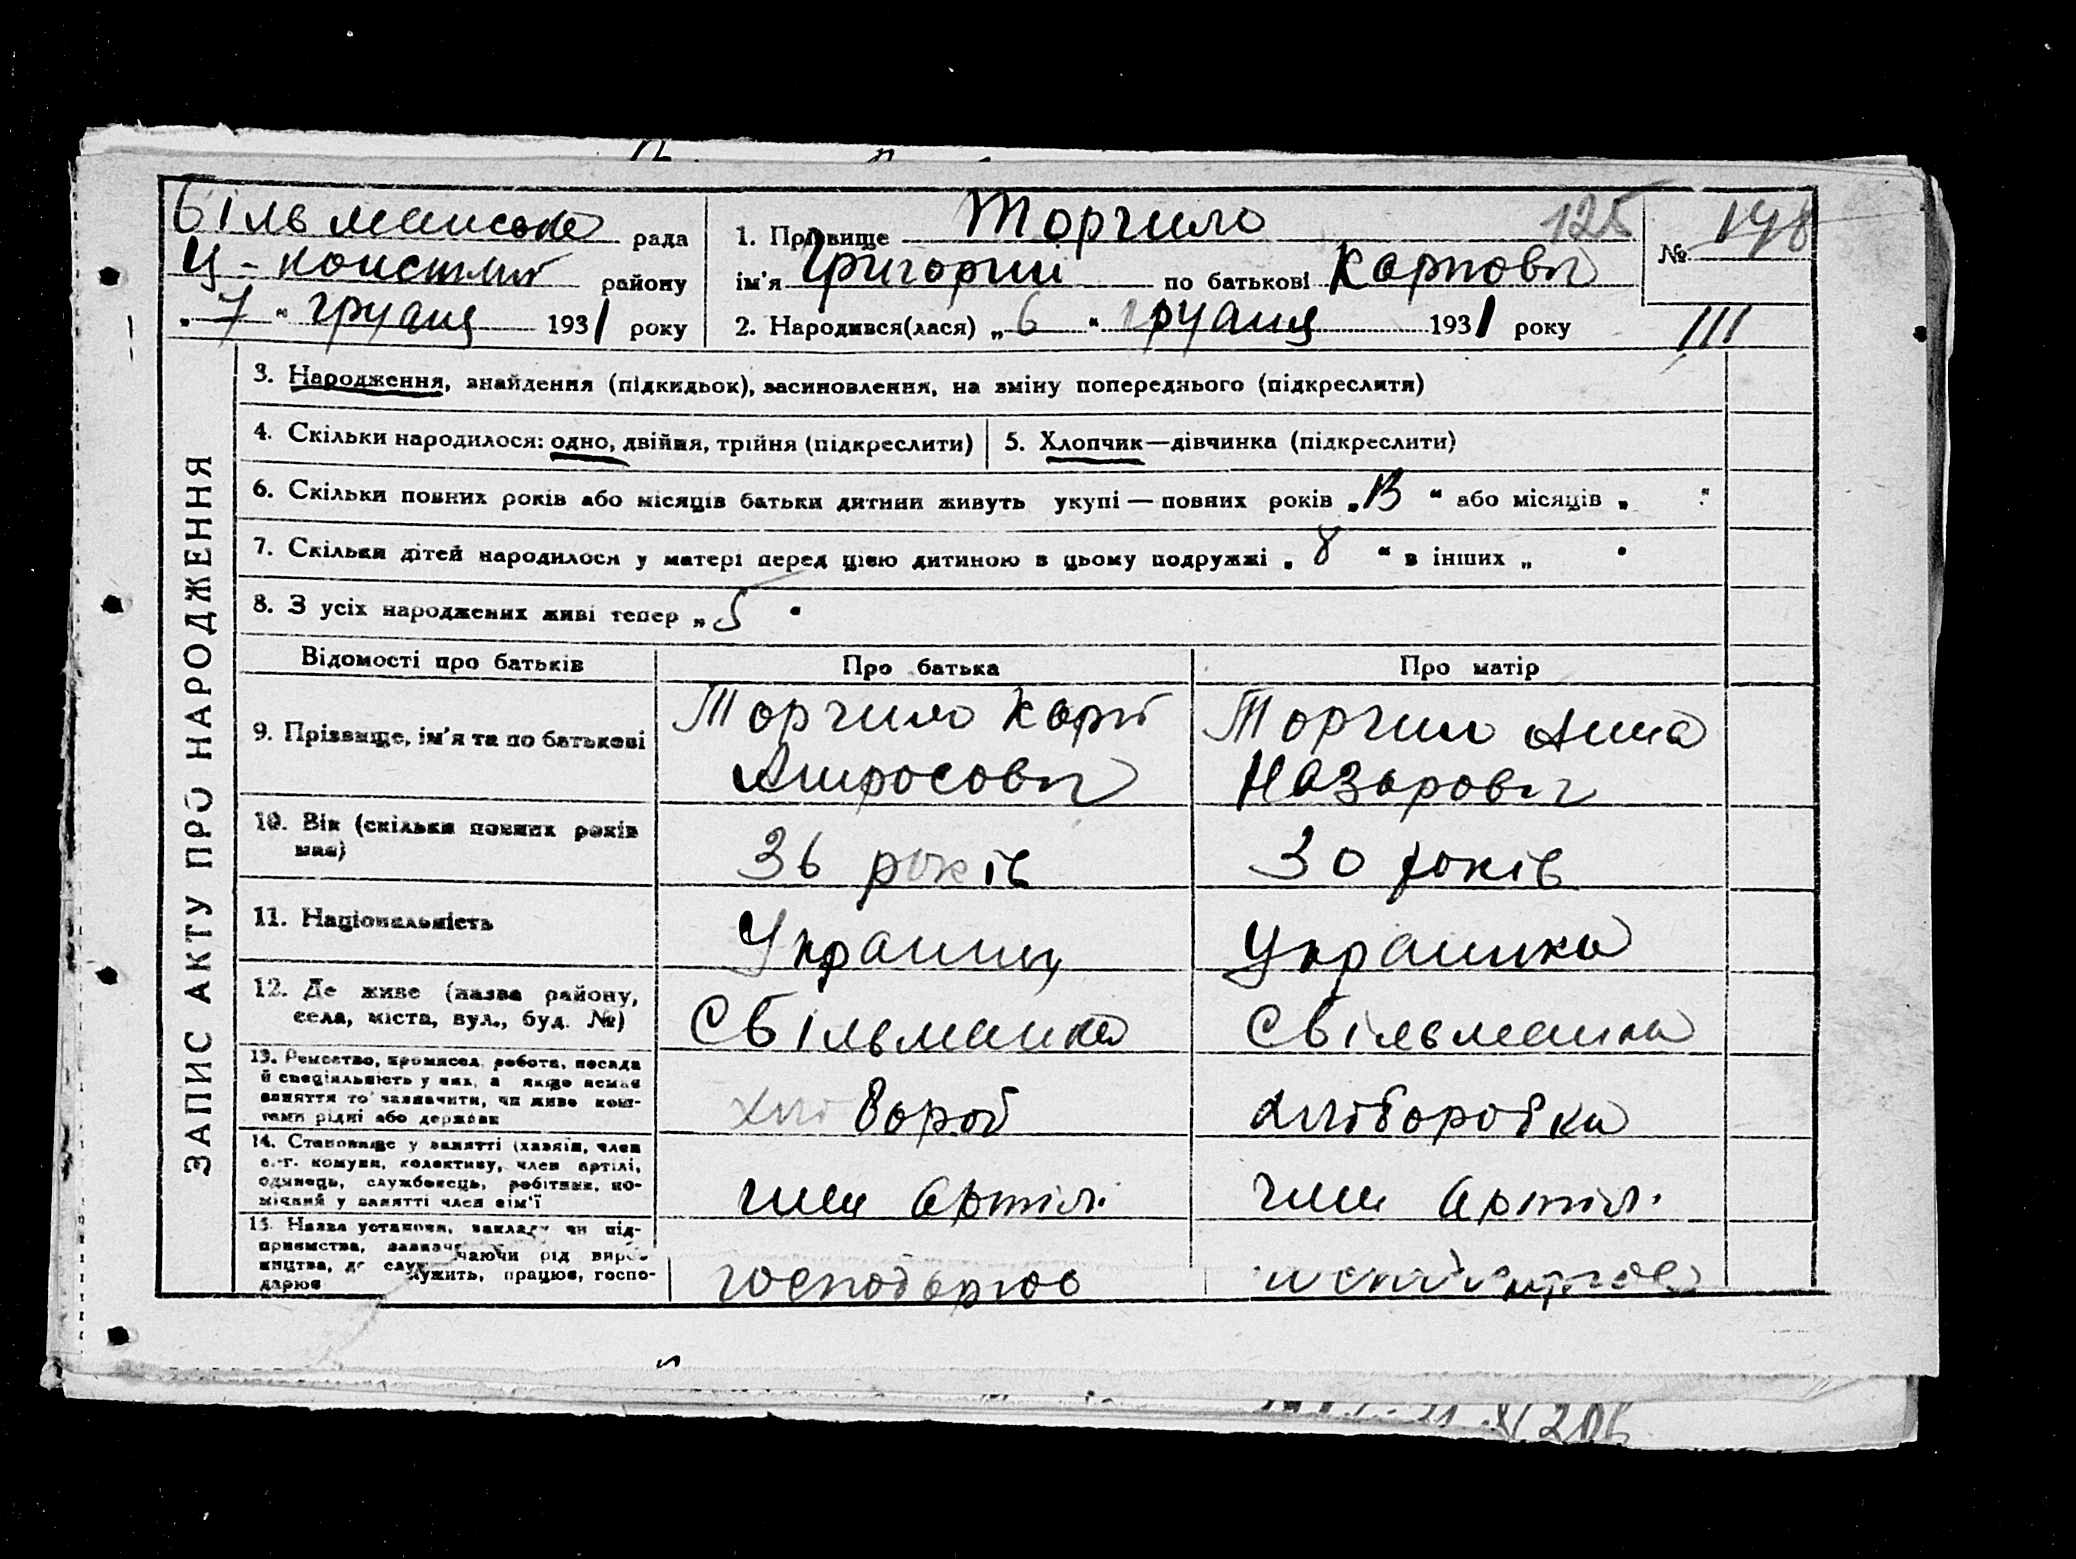 Більманська рада
Ц-констант району
„7“ грудня 1931 року
1. Прізвище Торчило 125
ім'я Григорий по батькові Карпович
2. Народився(лася) „6“ грудня 1931 року
№ 198
111
ЗАПИС АКТУ ПРО НАРОДЖЕННЯ
3. Народження, знайдення (підкидьок), засиновлення, на зміну попереднього (підкреслити)
4. Скільки народилося: одно, двійня, трійня (підкреслити)
5. Хлопчик—дівчинка (підкреслити)
6. Скільки повних років або місяців батьки дитини живуть укупі — повних років „13“ або місяців „ “
7. Скільки дітей народилося у матері перед цією дитиною в цьому подружжі „8“ в інших „ “
8. З усіх народжених живі тепер „5“
Відомості про батьків Про батька Про матір
9. Прізвище, ім'я та по батькові
Торчило Карп
Амросович
Торчило Анна
Назарович
10. Вік (скільки повних років
має)
36 років
30 років
11. Національність
Украинец
Украинка
12. Де живе (назва району,
села, міста, вул., буд. №)
С Більманка
С Більманка
13. Ремество, промисел, робота, посада
й спеціяльність у них, а якщо немає
заняття то зазначити, чи живе кош-
тами рідні або держави
хлібороб
хліборобка
14. Становище у занятті (хазяїн, член
с.-г. комуни, колективу, член артілі,
одинець, службовець, робітник, по-
мічний у занятті член сім'ї
член артіл.
член артіл.
15. Назва установи, закладу чи під-
приємства, зазначаючи рід вироб-
ництва, де служить, працює, госпо-
дарює
господарює
господарює
206